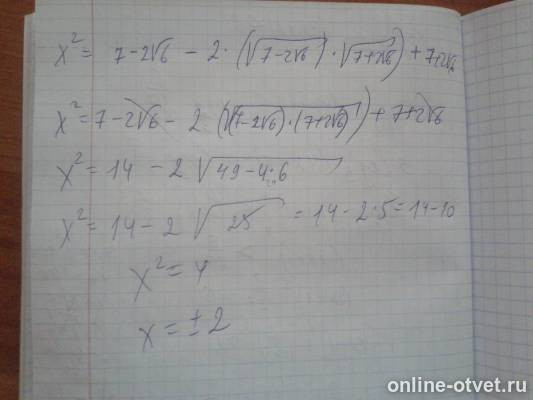 x² = 7-2√6 - 2·(√7-2√6 · √7+2√6) + 7+2√6
x² = 7-2√6 - 2 (√(7-2√6)·(7+2√6)) + 7+2√6
x² = 14 - 2 √49-4·6
x² = 14 - 2 √25 = 14-2·5 = 14-10
x² = 4
x = ±2
online-otvet.ru